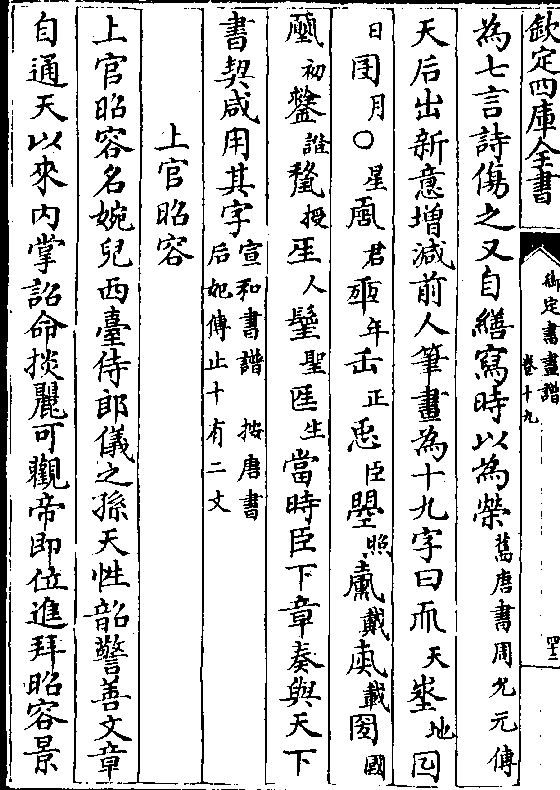 欽定四庫全書
御定書畫譜
卷十九
為七言詩傷之又自繕寫時以為榮舊唐書周允元傳
天后出新意增減前人筆畫為十九字曰𠀑天埊地𡆠
日囝月〇星君年𠙺正𢘑臣曌照戴載圀國
初證授𤯔人聖生當時臣下章奏與天下
書契咸用其字宣和書譜 按唐書
后妃傳止十有二文
上官昭容
上官昭容名婉兒西臺侍郎儀之孫天性韶警善文章
自通天以來内掌詔命掞麗可觀帝即位進拜昭容景